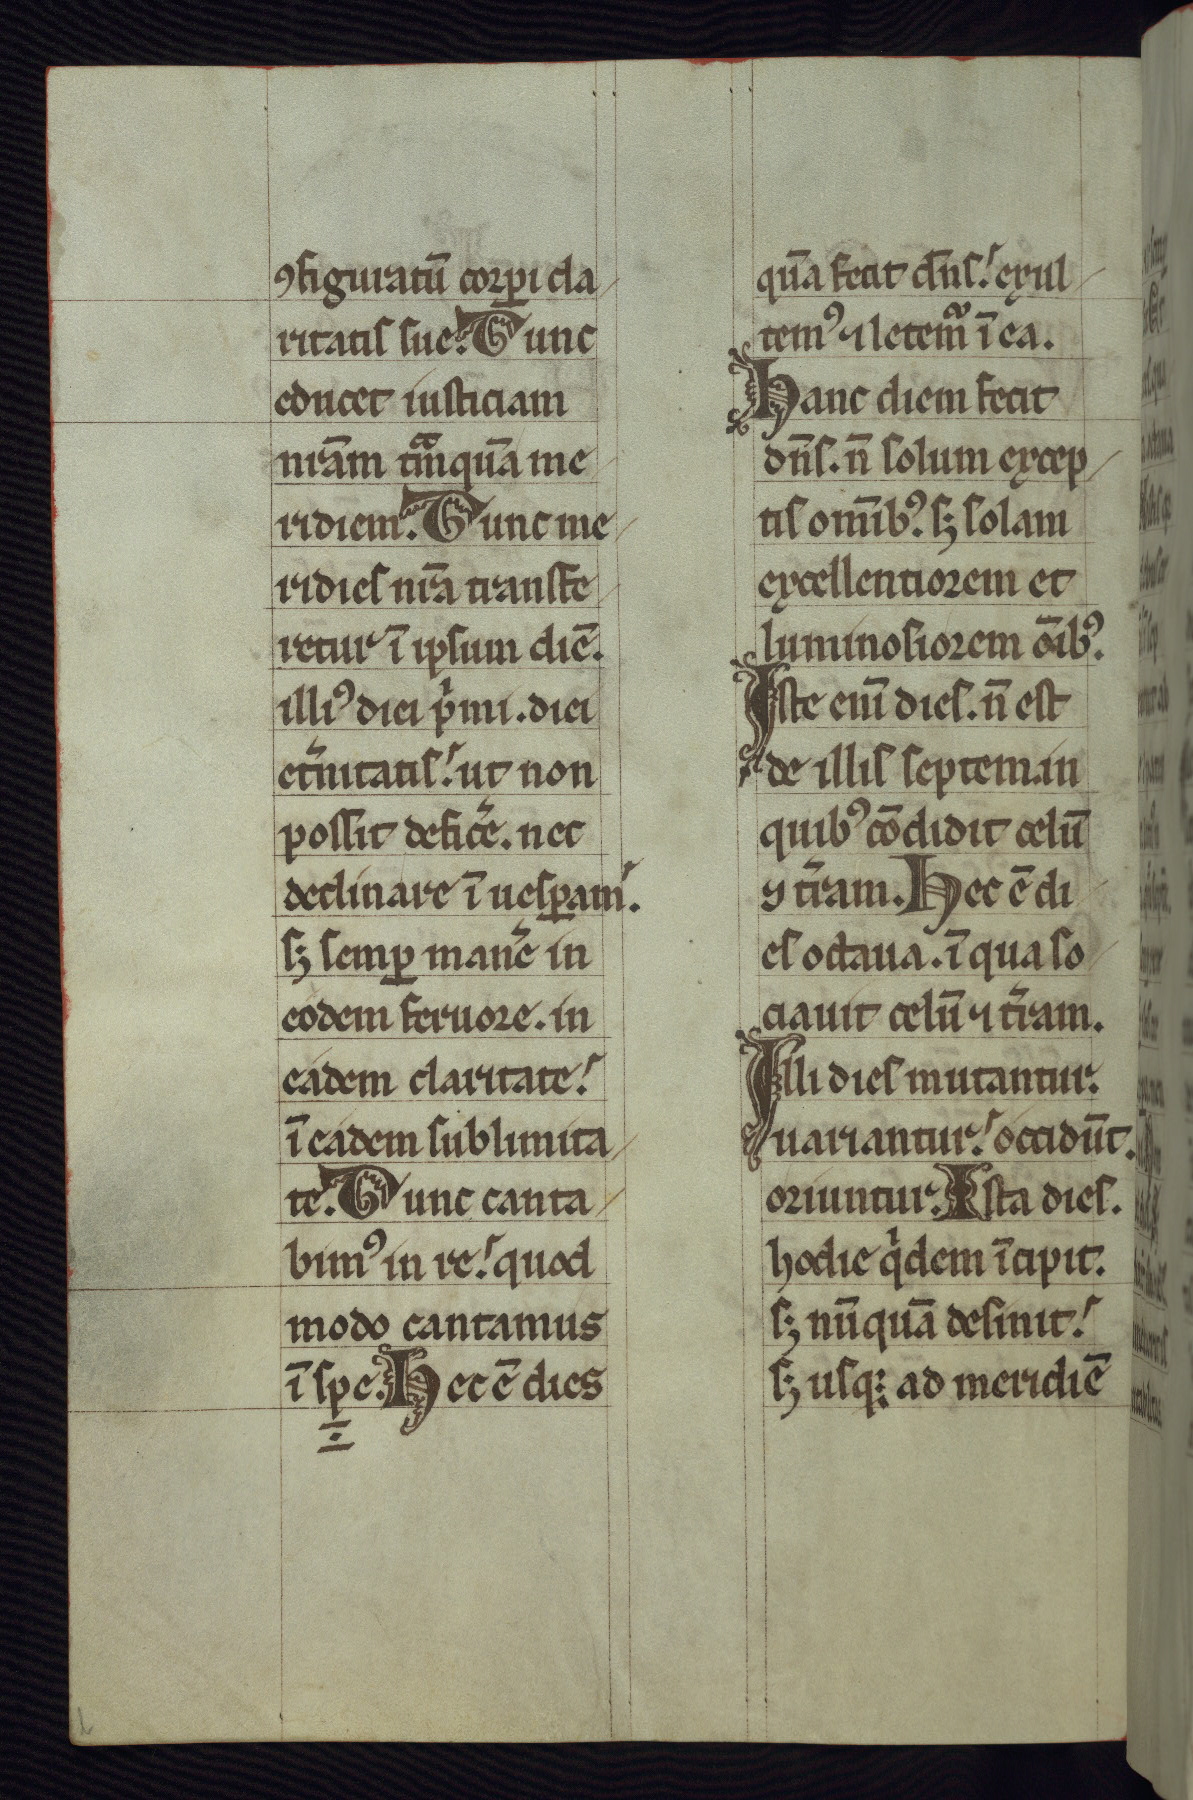 ꝯfiguratū corꝑi cla
ritatis sue. Tunc
educet iusticiam
nr̄am tāmquā me
ridiem. Tunc me
ridies nr̄a transfe
retur ī ipsum diē.
illiꝰ diei pͥmi. diei
et͛nitatis. ut non
possit defic͛e. nec
declinare ī uesꝑam.
sꝫ semꝑ man͛e in
eodem feruore. in
eadem claritate.
ī eadem sublimita
te. Tunc canta
bimꝰ in re. quod
modo cantamus
ī spe. Hec ē dies
quā fecit dn̄s. exul
temꝰ ⁊ letemᷓ ī ea.
Hanc diem fecit
dn̄s. n̄ solum excep
tis omībꝰ. sꝫ solam
excellentiorem et
luminosiorem oīb᷒ꝰ.
Iste eni᷒̄ dies. n̄ est
de illis septem. in
quibꝰ cōdidit celū
⁊ t͛ram. Hec ē di
es octaua. ī qua so
ciauit celū ⁊ t͛ram.
Illi dies mutantur.
uariantur. occidūt.
oriuntur. Ista dies.
hodie qͥdem īcipit.
sꝫ nūquā desinit.
sꝫ usqꝫ ad meridiē